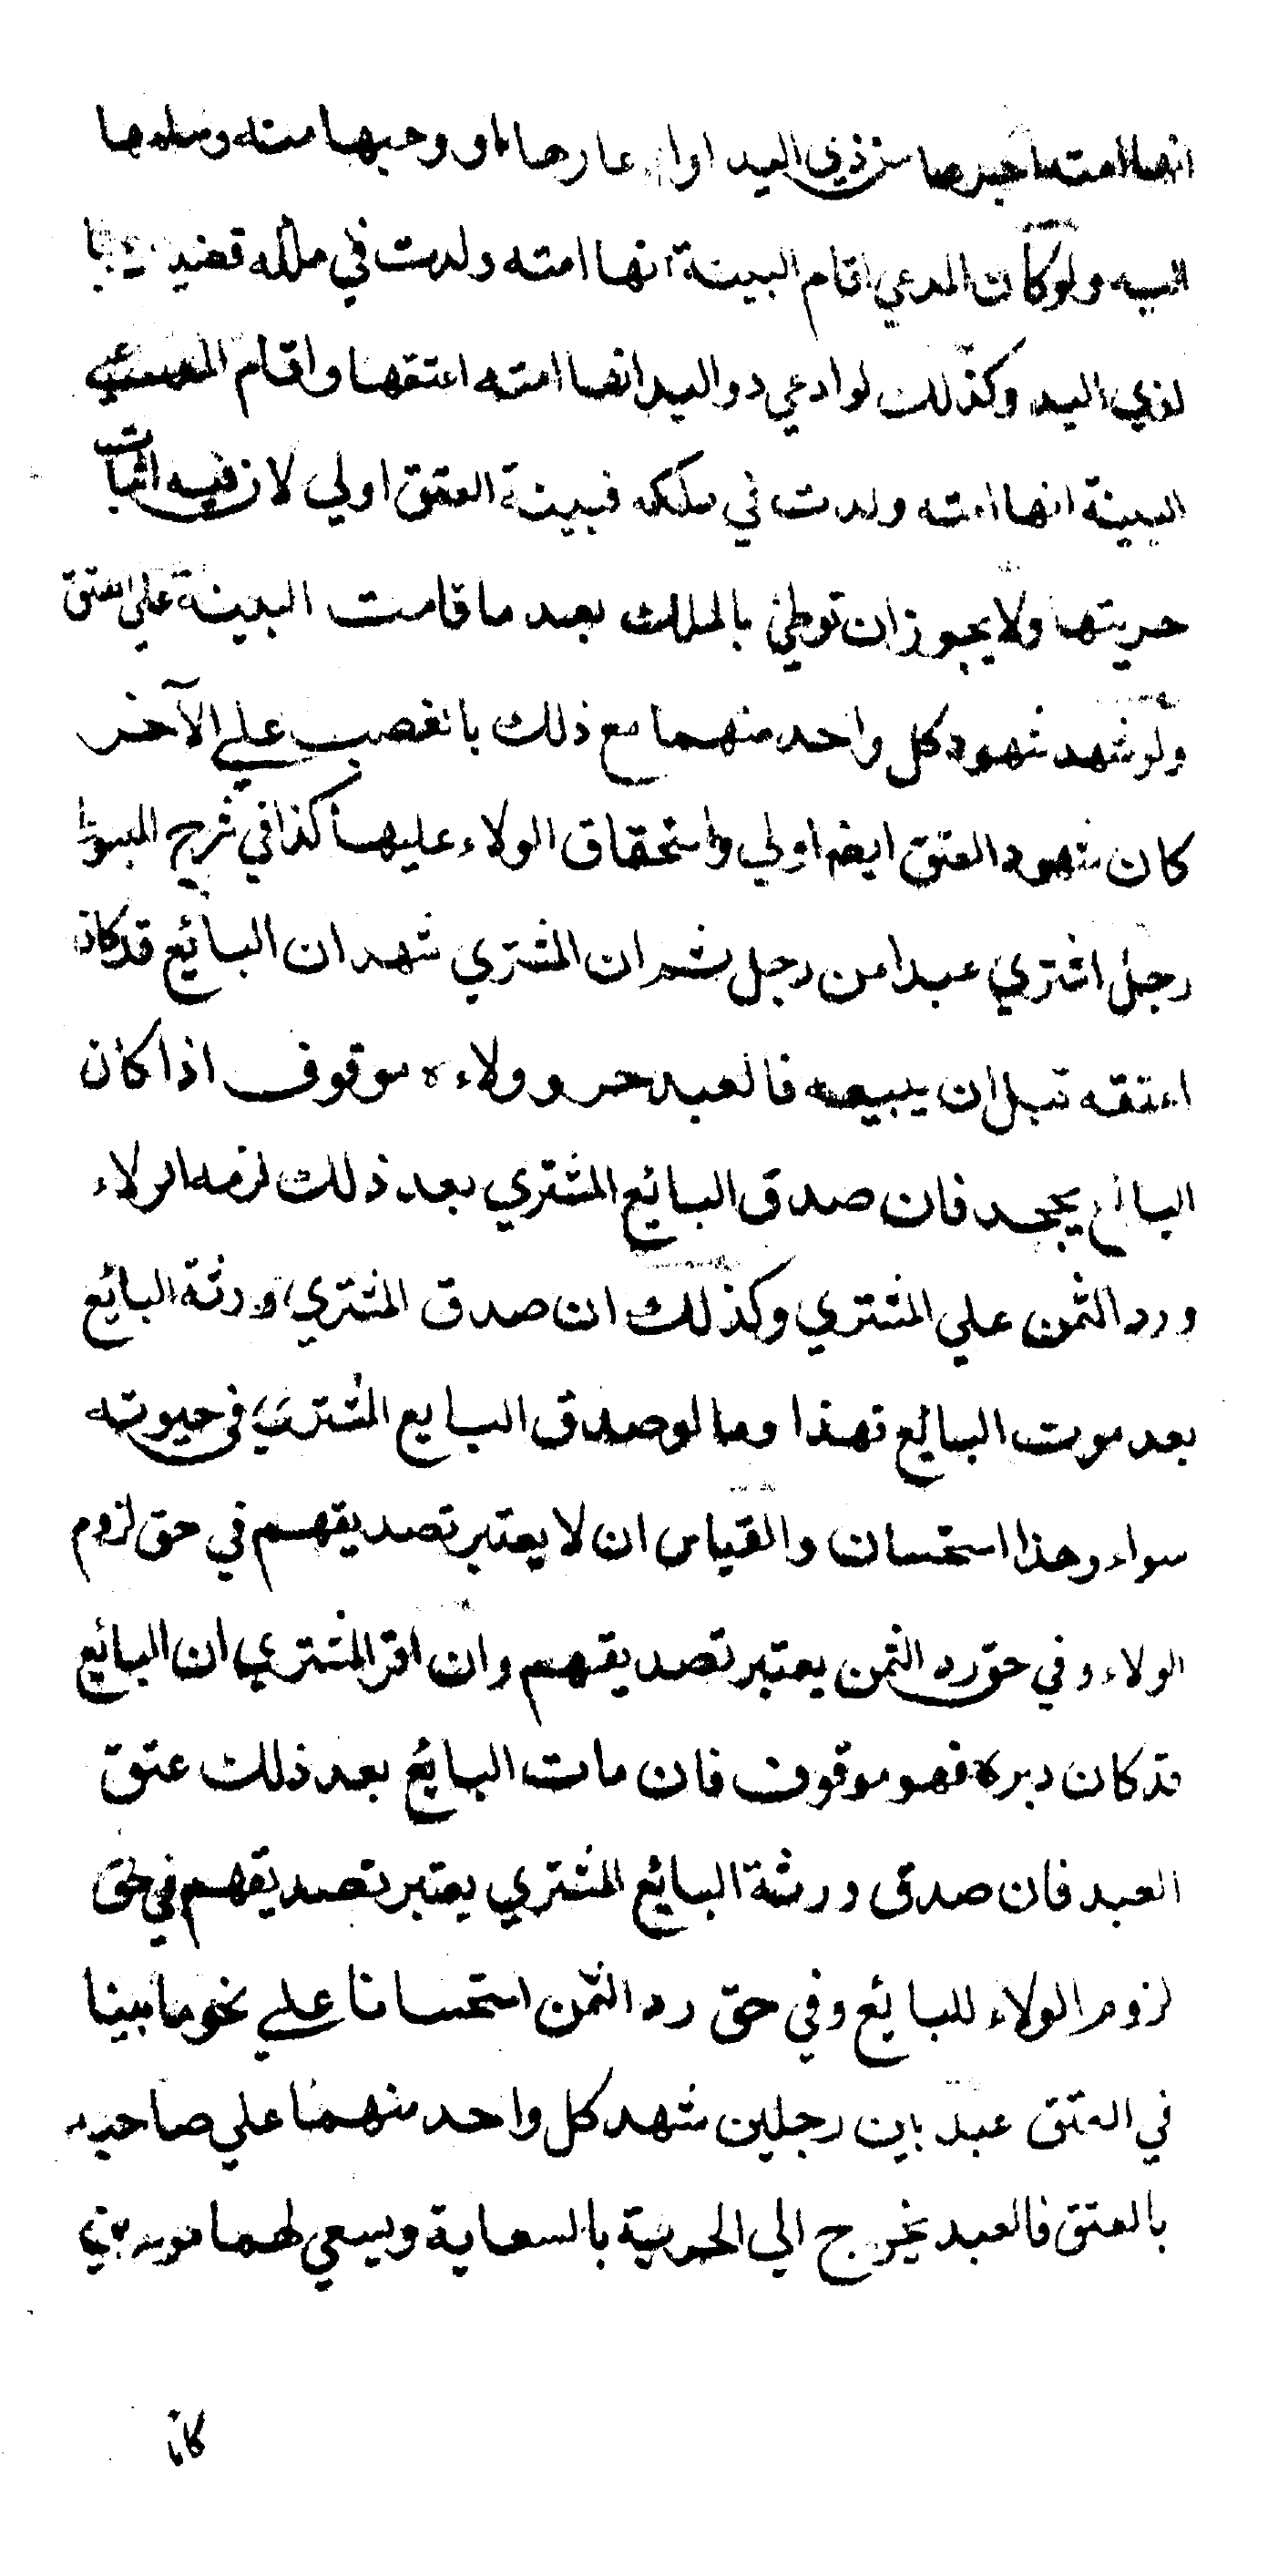 انها امته اجرها من ذي اليد او اعارها او وهبها منه وسلمها
اليه ولو كان المدعي اقام البينة انها امته ولدت في ملكه قضيت بها
لذي اليد وكذلك لو ادعي ذو اليد انها امته اعتقها واقام المدعي
البينة انها امته ولدت في ملكه فبينة العتق اولي لان فيه اثبات
حريتها ولا يجوز ان توطئ بالملك بعد ما قامت البينة علي العتق
ولو شهد شهود كل واحد منهما مع ذلك بالغصب علي الآخر
كان شهود العتق ايضا اولي واستحقاق الولاء عليها كذا في شرح المبسوط
رجل اشتري عبدا من رجل ثم ان المشتري شهد ان البائع قد كان
اعتقه قبل ان يبيعه فالعبد حر وولاءه موقوف اذا كان
البائع يجحد فان صدق البائع المشتري بعد ذلك لزمه الولاء
ورد الثمن علي المشتري وكذلك ان صدق المشتري ورثة البائع
بعد موت البائع فهذا وما لو صدق البايع المشتري في حيوته
سواء وهذا استحسان والقياس ان لا يعتبر تصديقهم في حق لزوم
الولاء وفي حق رد الثمن يعتبر تصديقهم وان اقر المشتري ان البائع
قد كان دبره فهو موقوف فان مات البائع بعد ذلك عتق
العبد فان صدق ورثة البائع المشتري يعتبر تصديقهم في حق
لزوم الولاء للبائع وفي حق رد الثمن استحسانا علي نحو ما بينا
في العتق عبد بين رجلين شهد كل واحد منهما علي صاحبه
بالعتق فالعبد يخرج الي الحرية بالسعاية ويسعي لهما موسرين
كانا